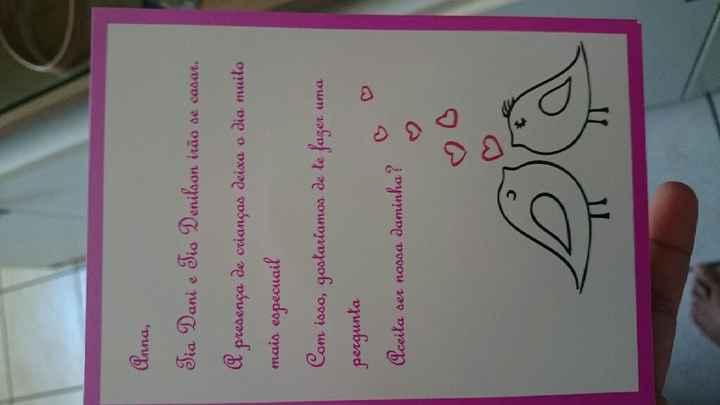 Anna,
Tia Dani e Tio Denilson irão se casar.
A presença de crianças deixa o dia muito
mais especuail
Com isso, gostariamos de te fazer uma
pergunta
Aceita ser nossa daminha?